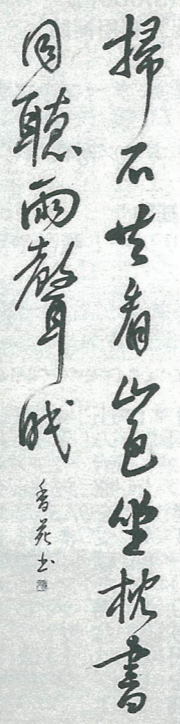 掃石共看山色坐枕書
同聽雨聲眠
香苑书